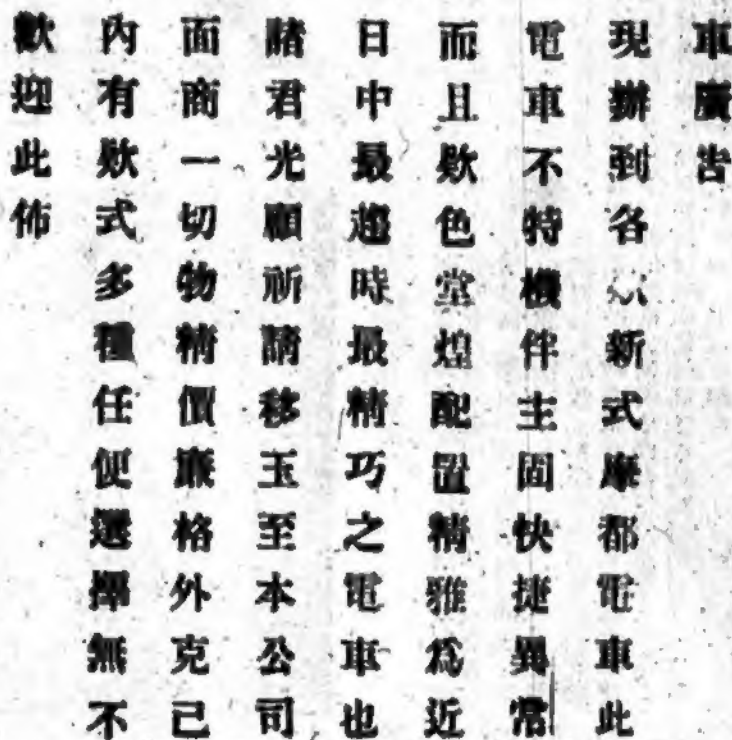 車廣告
現辦到各新式摩都電車此
電車不特機件主固快捷異常
而且欵色堂煌配置精雅為近
日中最趨時最精巧之電車也
諸君光顧祈請移玉至本公司
面商一切物精價廉格外克己
內有欵式多種任便選擇無不
歡迎此佈